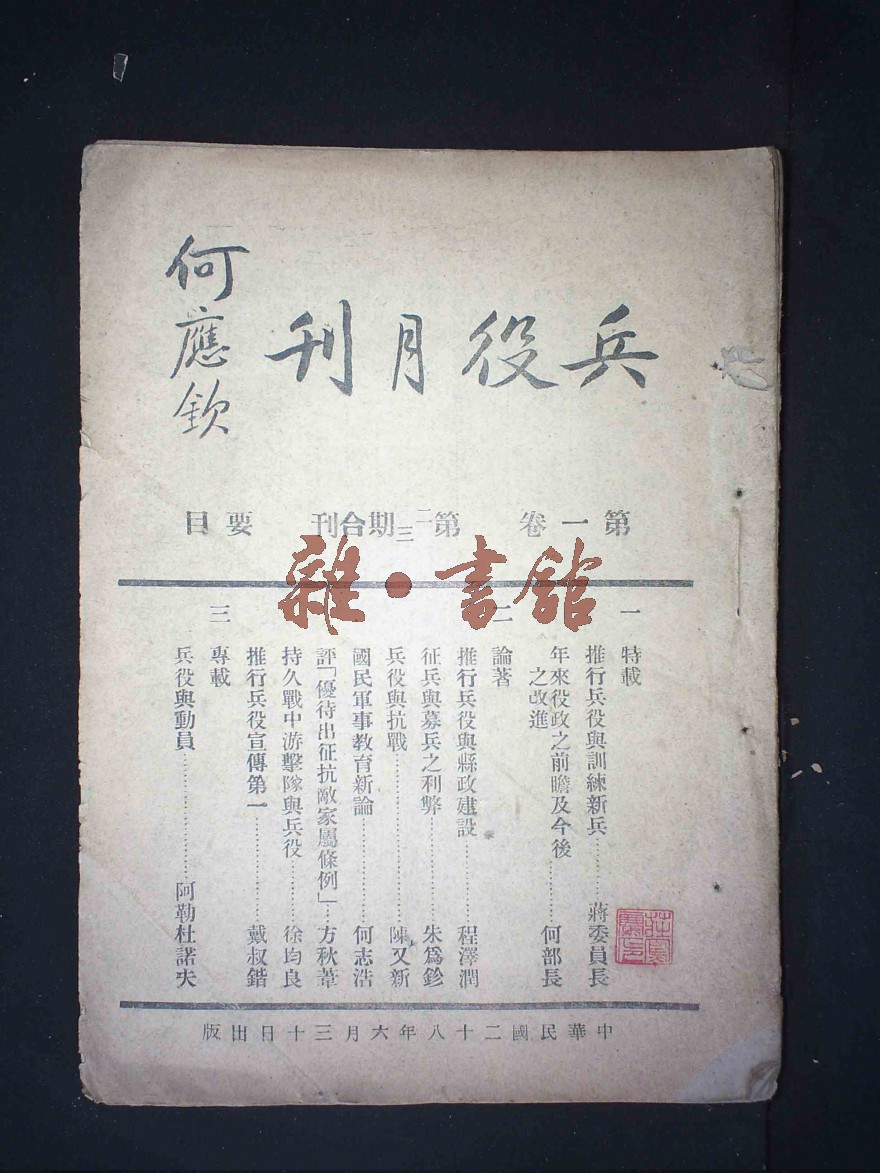 兵役月刊
何應欽
第一卷 第二三期合刊 要目
雜·書館
一 特載
推行兵役與訓練新兵………蔣委員長
年來役政之前瞻及今後之改進………何部長
二 論著
推行兵役與縣政建設………程澤潤
征兵與募兵之利弊………朱爲鉁
兵役與抗戰………陳又新
國民軍事教育新論………何志浩
評「優待出征抗敵家屬條例」…方秋葦
持久戰中游擊隊與兵役………徐均良
推行兵役宣傳第一………戴叔鍇
三 專載
兵役與動員………阿勒杜諾夫
中華民國二十八年六月三十日出版